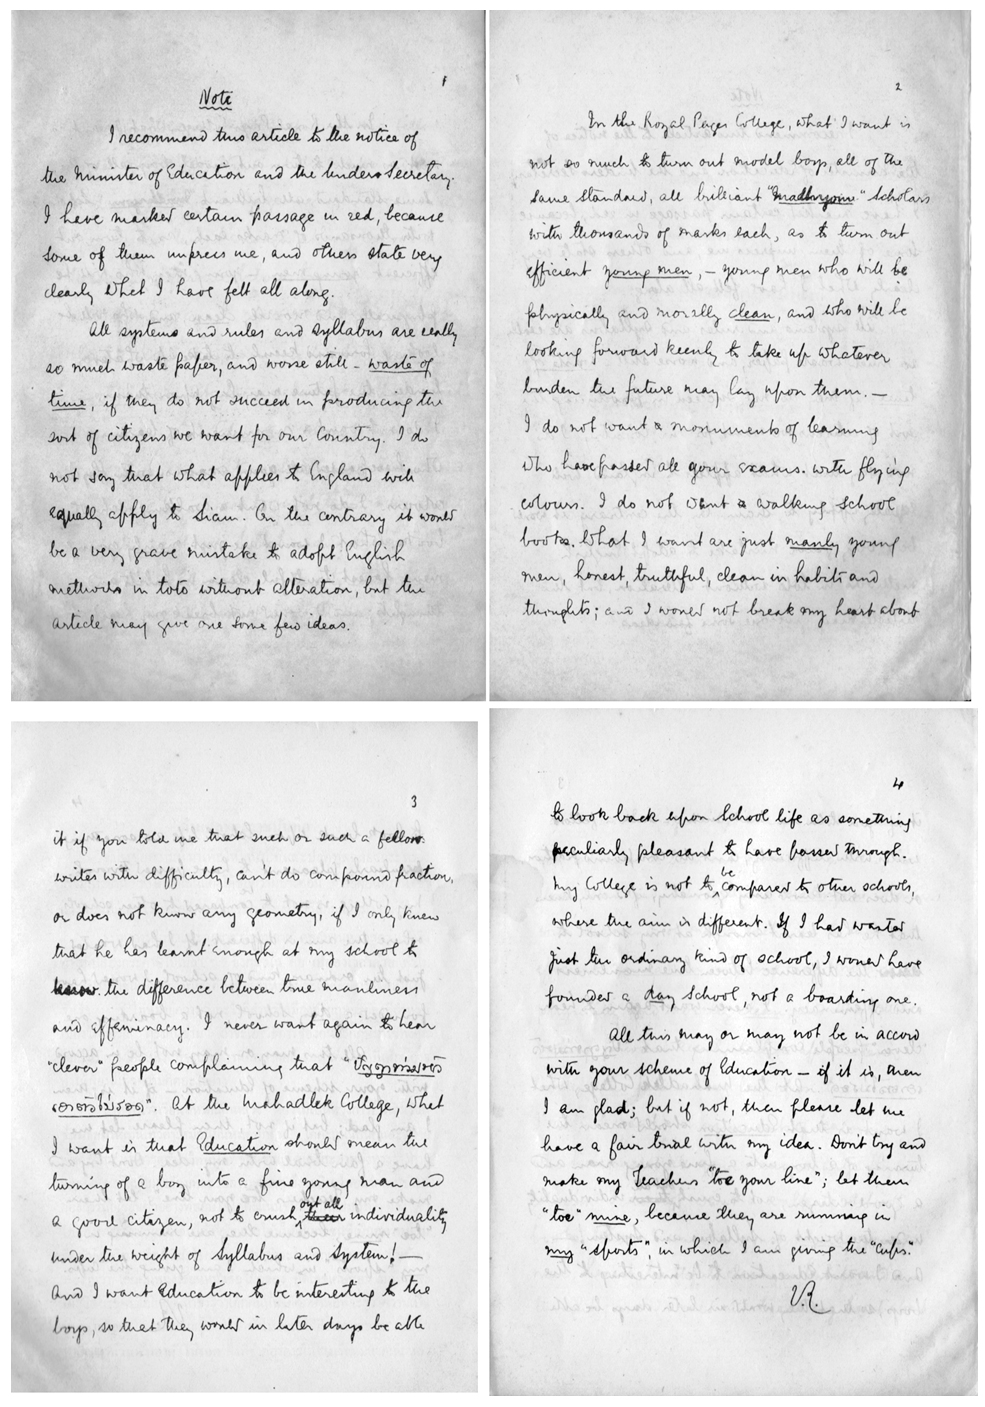 1
Note
I recommend this article to the notice of
the Minister of Education and the Under Secretary.
I have marked certain passage in red, because
some of them impress me, and others state very
clearly what I have felt all along.
All systems and rules and syllabus are really
so much waste paper, and worse still – waste of
time, if they do not succeed in producing the
sort of citizens we want for our Country. I do
not say that what applies to England will
equally apply to Siam. On the contrary it would
be a very grave mistake to adopt English
methods in toto without alteration, but the
article may give one some few ideas.
2
In the Royal Pages College, what I want is
not so much to turn out model boys, all of the
same standard, all brilliant "Madhyom" scholars
with thousands of marks each, as to turn out
efficient young men, – young men who will be
physically and morally clean, and who will be
looking forward keenly to take up whatever
burden the future may lay upon them. —
I do not want monuments of learning
who have passed all your exams. with flying
colours. I do not want walking school
books. What I want are just manly young
men, honest, truthful, clean in habits and
thoughts; and I would not break my heart about
3
it if you told me that such or such a fellow
writes with difficulty, can't do compound fraction,
or does not know any geometry, if I only knew
that he has learnt enough at my school to
know the difference between true manliness
and effeminacy. I never want again to hear
"clever" people complaining that "ปัญญาท่วมหัว
เอาตัวไม่รอด". At the Mahadlek College, what
I want is that Education should mean the
turning of a boy into a fine young man and
a good citizen, not to crush out all individuality
under the weight of syllabus and system! —
And I want education to be interesting to the
boys, so that they would in later days be able
4
to look back upon School life as something
peculiarly pleasant to have passed through.
My College is not to be compared to other schools,
where the aim is different. If I had wanted
just the ordinary kind of school, I would have
founded a day School, not a boarding one.
All this may or may not be in accord
with your scheme of Education – if it is, then
I am glad; but if not, then please let me
have a fair trial with my idea. Don't try and
make my Teachers "toe your line"; let them
"toe" mine, because they are running in
my "sports", in which I am giving the "Cups".
V.R.